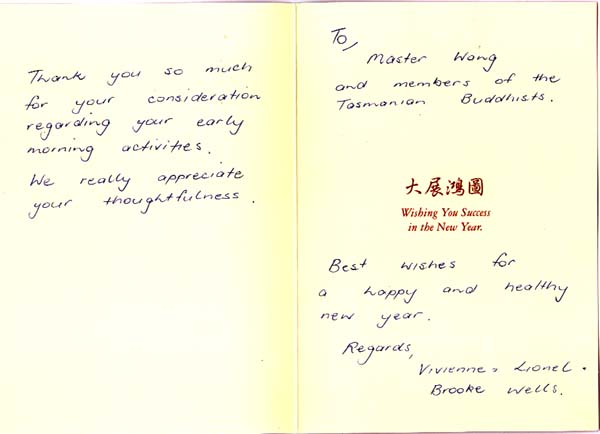 Thank you so much
for your consideration
regarding your early
morning activities.
We really appreciate
your thoughtfulness.
To,
Master Wang
and members of the
Tasmanian Buddhists.
大展鴻圖
Wishing You Success
in the New Year.
Best wishes for
a happy and healthy
new year.
Regards,
Vivienne, Lionel.
Brooke Wells.